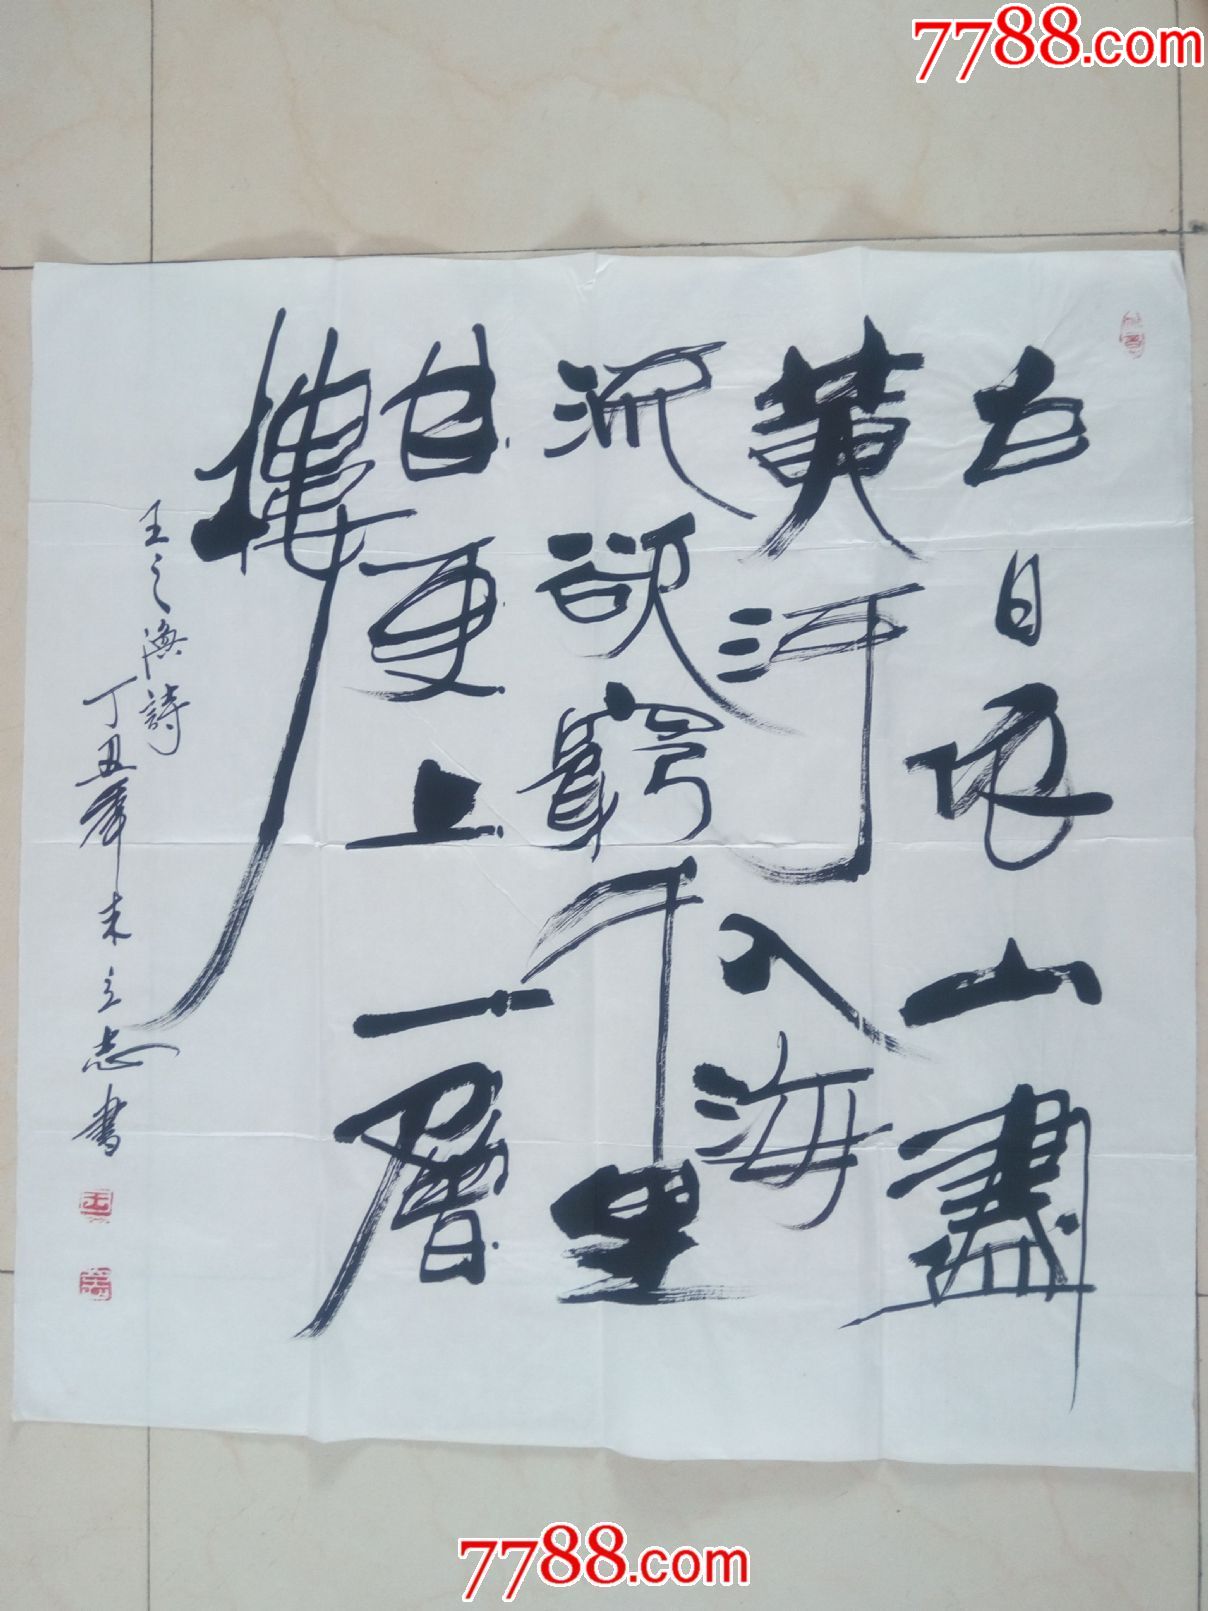 7788.com
白日依山盡
黃河入海
流欲窮千里
目更上一層
樓
王之渙詩
丁丑年末立志書
7788.com